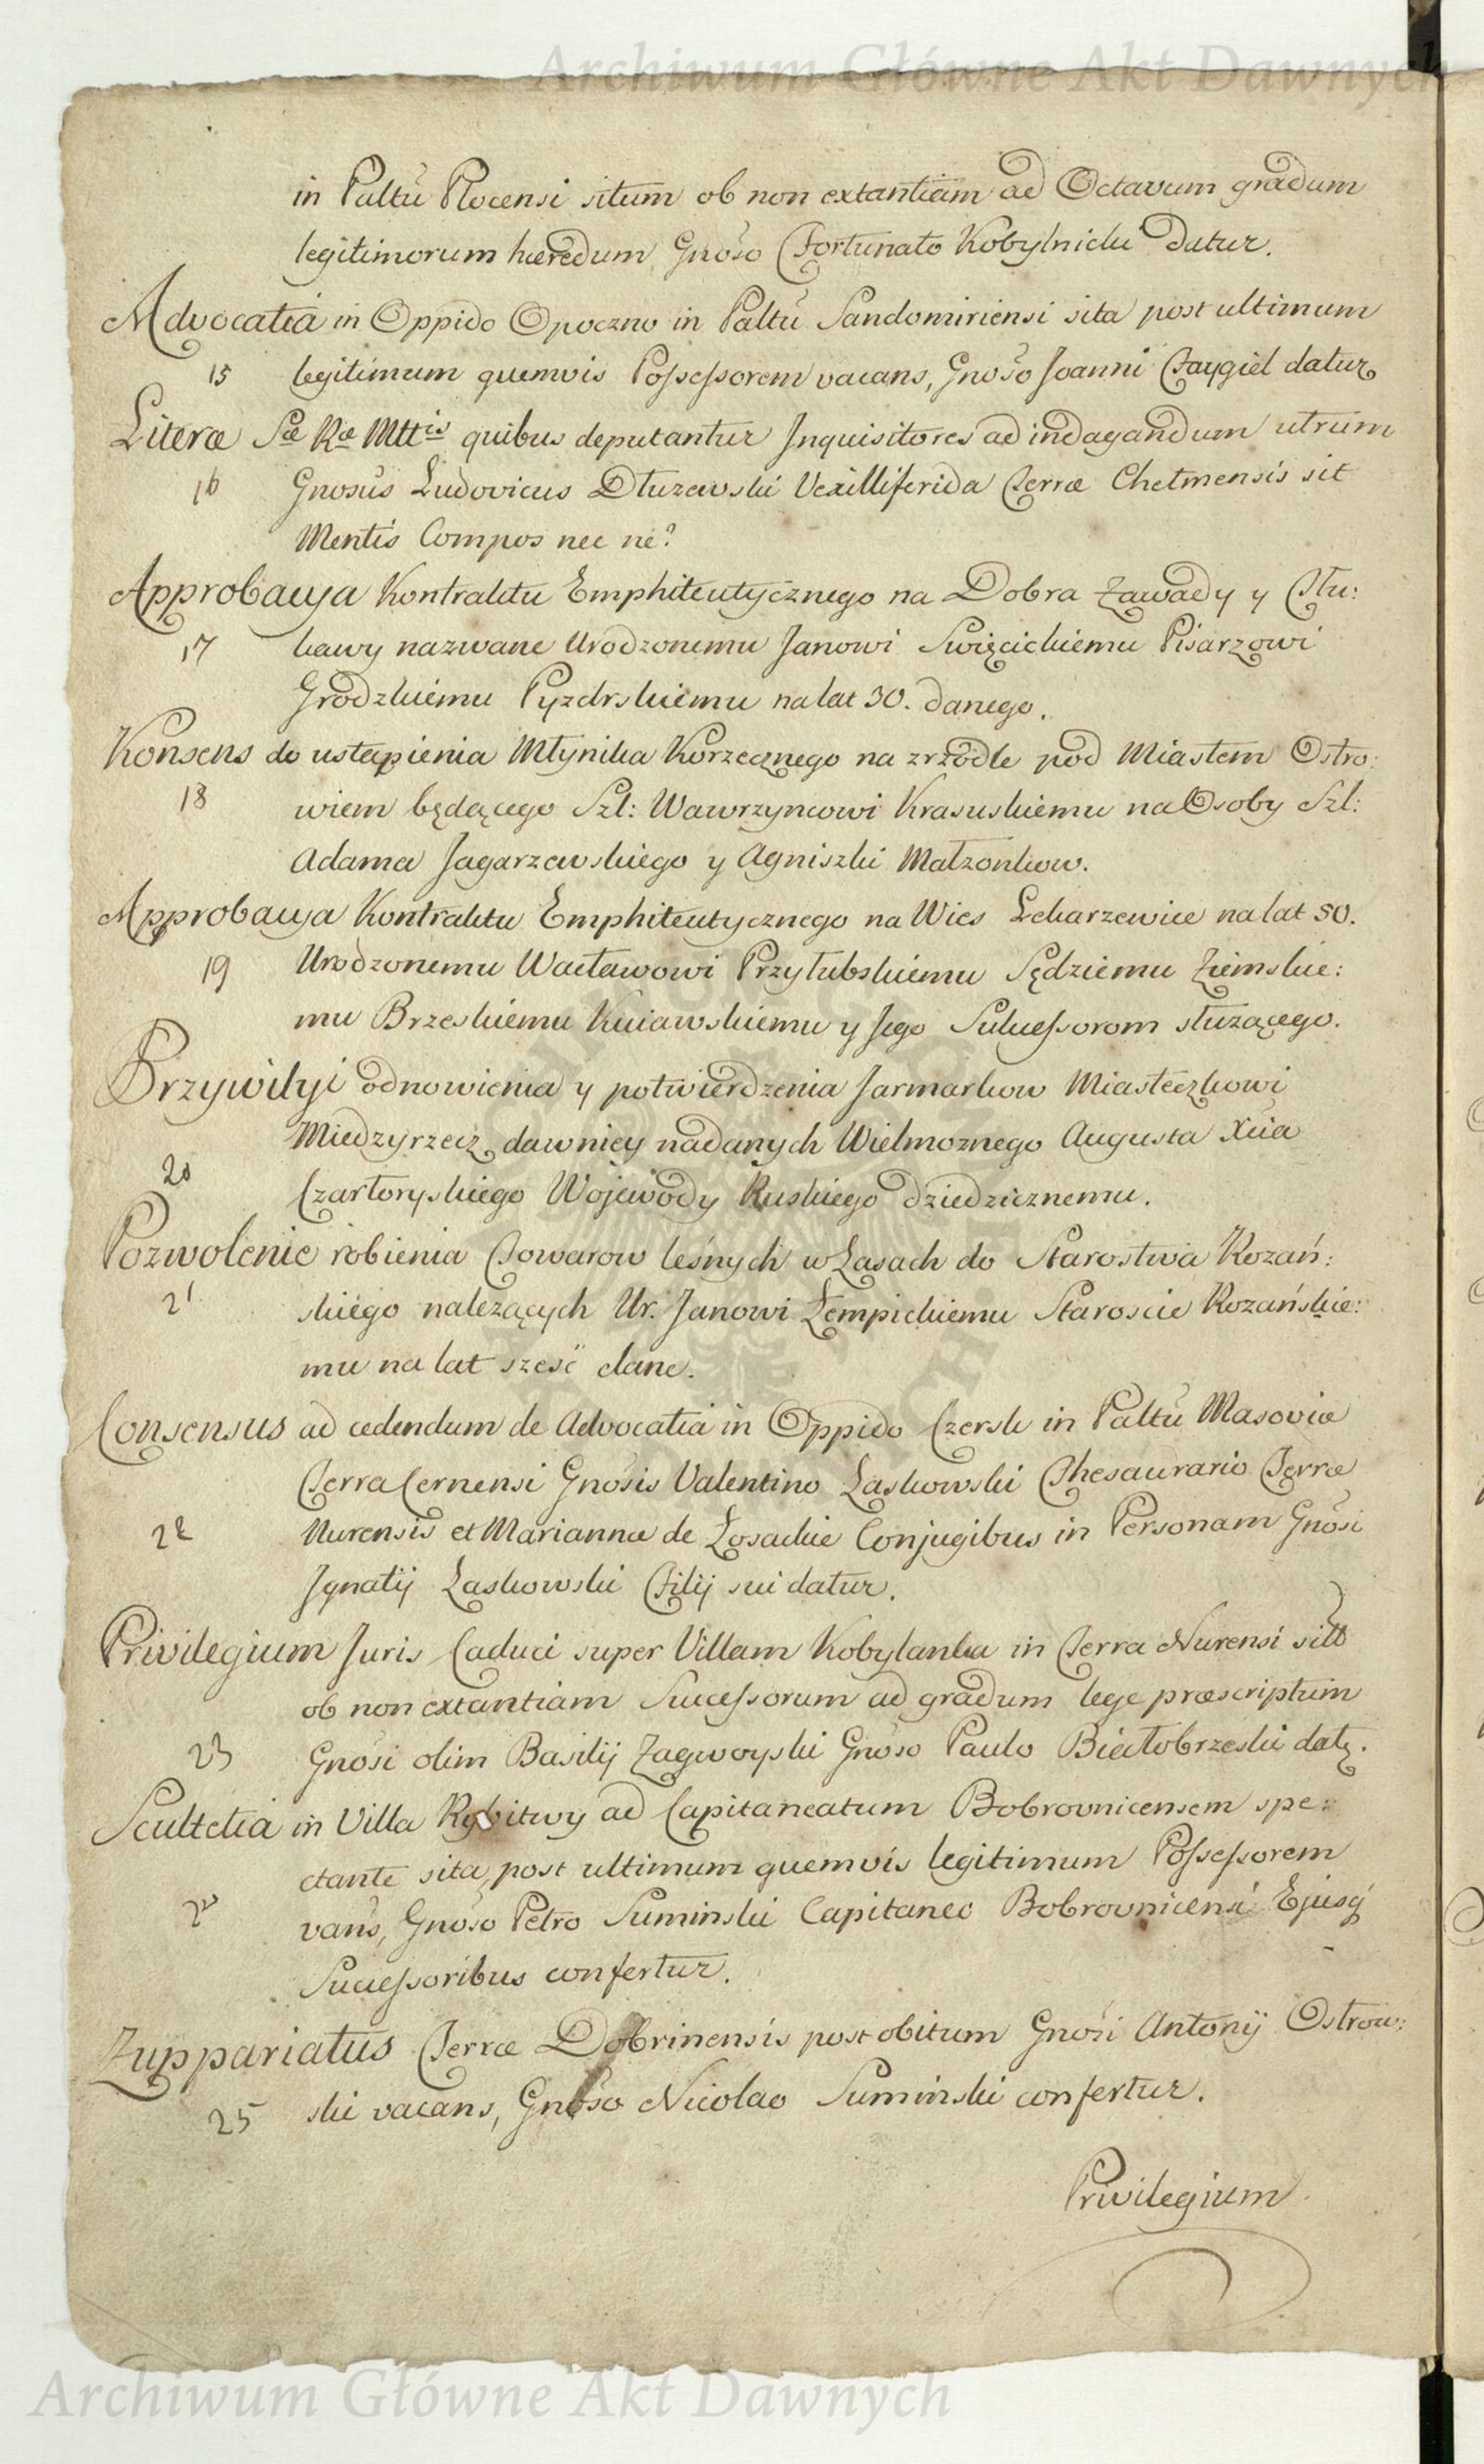 Archiwum Główne Akt Dawnych
in Paltu Plocensi situm ob non extantiam ad Octavum gradum
legitimorum hæredum Gnoso Fortunato Kobylnicki datur.
Advocatia in Oppido Opoczno in Paltu Sandomiriensi sita post ultimum
15 legitimum quemvis Possessorem vacans, Gnoso Joanni Faygiel datur
Literæ Sæ Ræ Mttis quibus deputantur Inquisitores ad indagandum utrum
16 Gnosus Ludovicus Dłuzewski Vexilliferida Terræ Chełmensis sit
Mentis Compos nec ne?
Approbacya Kontraktu Emphiteutycznego na Dobra Zawady y Tłu:
17 kawy nazwane Urodzonemu Janowi Swięcickiemu Pisarzowi
Grodzkiemu Pyzdrskiemu na lat 30. danego.
Konsens do ustąpienia Młynika Korzecznego na zrzodle pod Miastem Ostro:
18 wiem będącego Szl: Wawrzyncowi Krasuskiemu na Osoby Szl:
Adama Jagarzewskiego y Agniszki Małzonkow.
Approbacya Kontraktu Emphiteutycznego na Wies Lekarzewice na lat 50.
19 Urodzonemu Wacławowi Przyłubskiemu Sędziemu Ziemskie:
mu Brzeskiemu Kuiawskiemu y Jego Sukcessorom słuzącego.
Przywilyi odnowienia y potwierdzenia Jarmarkow Miasteczkowi
Miedzyrzecz dawniey nadanych Wielmoznego Augusta Xcia
20 Czartoryskiego Wojewody Ruskiego dziedzicznemu.
Pozwolenie robienia Towarow leśnych w Lasach do Starostwa Rozań:
21 skiego nalezących Ur. Janowi Łempickiemu Staroscie Rozańskie:
mu na lat szesć dane.
Consensus ad cedendum de Advocatia in Oppido Czersk in Paltu Masoviæ
Terra Cernensi Gnosis Valentino Laskowski Thesaurario Terræ
22 Nurensis et Marianna de Łosackie Conjugibus in Personam Gnosi
Ignatij Laskowski Filij sui datur.
Privilegium Juris Caduci super Villam Kobylanka in Terra Nurensi sitã
ob non extantiam Successorum ad gradum lege præscriptum
23 Gnosi olim Basilij Zagwoyski Gnoso Paulo Białobrzeski datr.
Scultetia in Villa Rybitwy ad Capitaneatum Bobrovnicensem spe:
ctante sita, post ultimum quemvis legitimum Possessorem
24 vans, Gnoso Petro Suminski Capitaneo Bobrovnicensi Ejusq
Successoribus confertur.
Zuppariatus Terræ Dobrinensis post obitum Gnosi Antonij Ostrow:
25 ski vacans, Gnoso Nicolao Suminski confertur.
Privilegium
Archiwum Główne Akt Dawnych